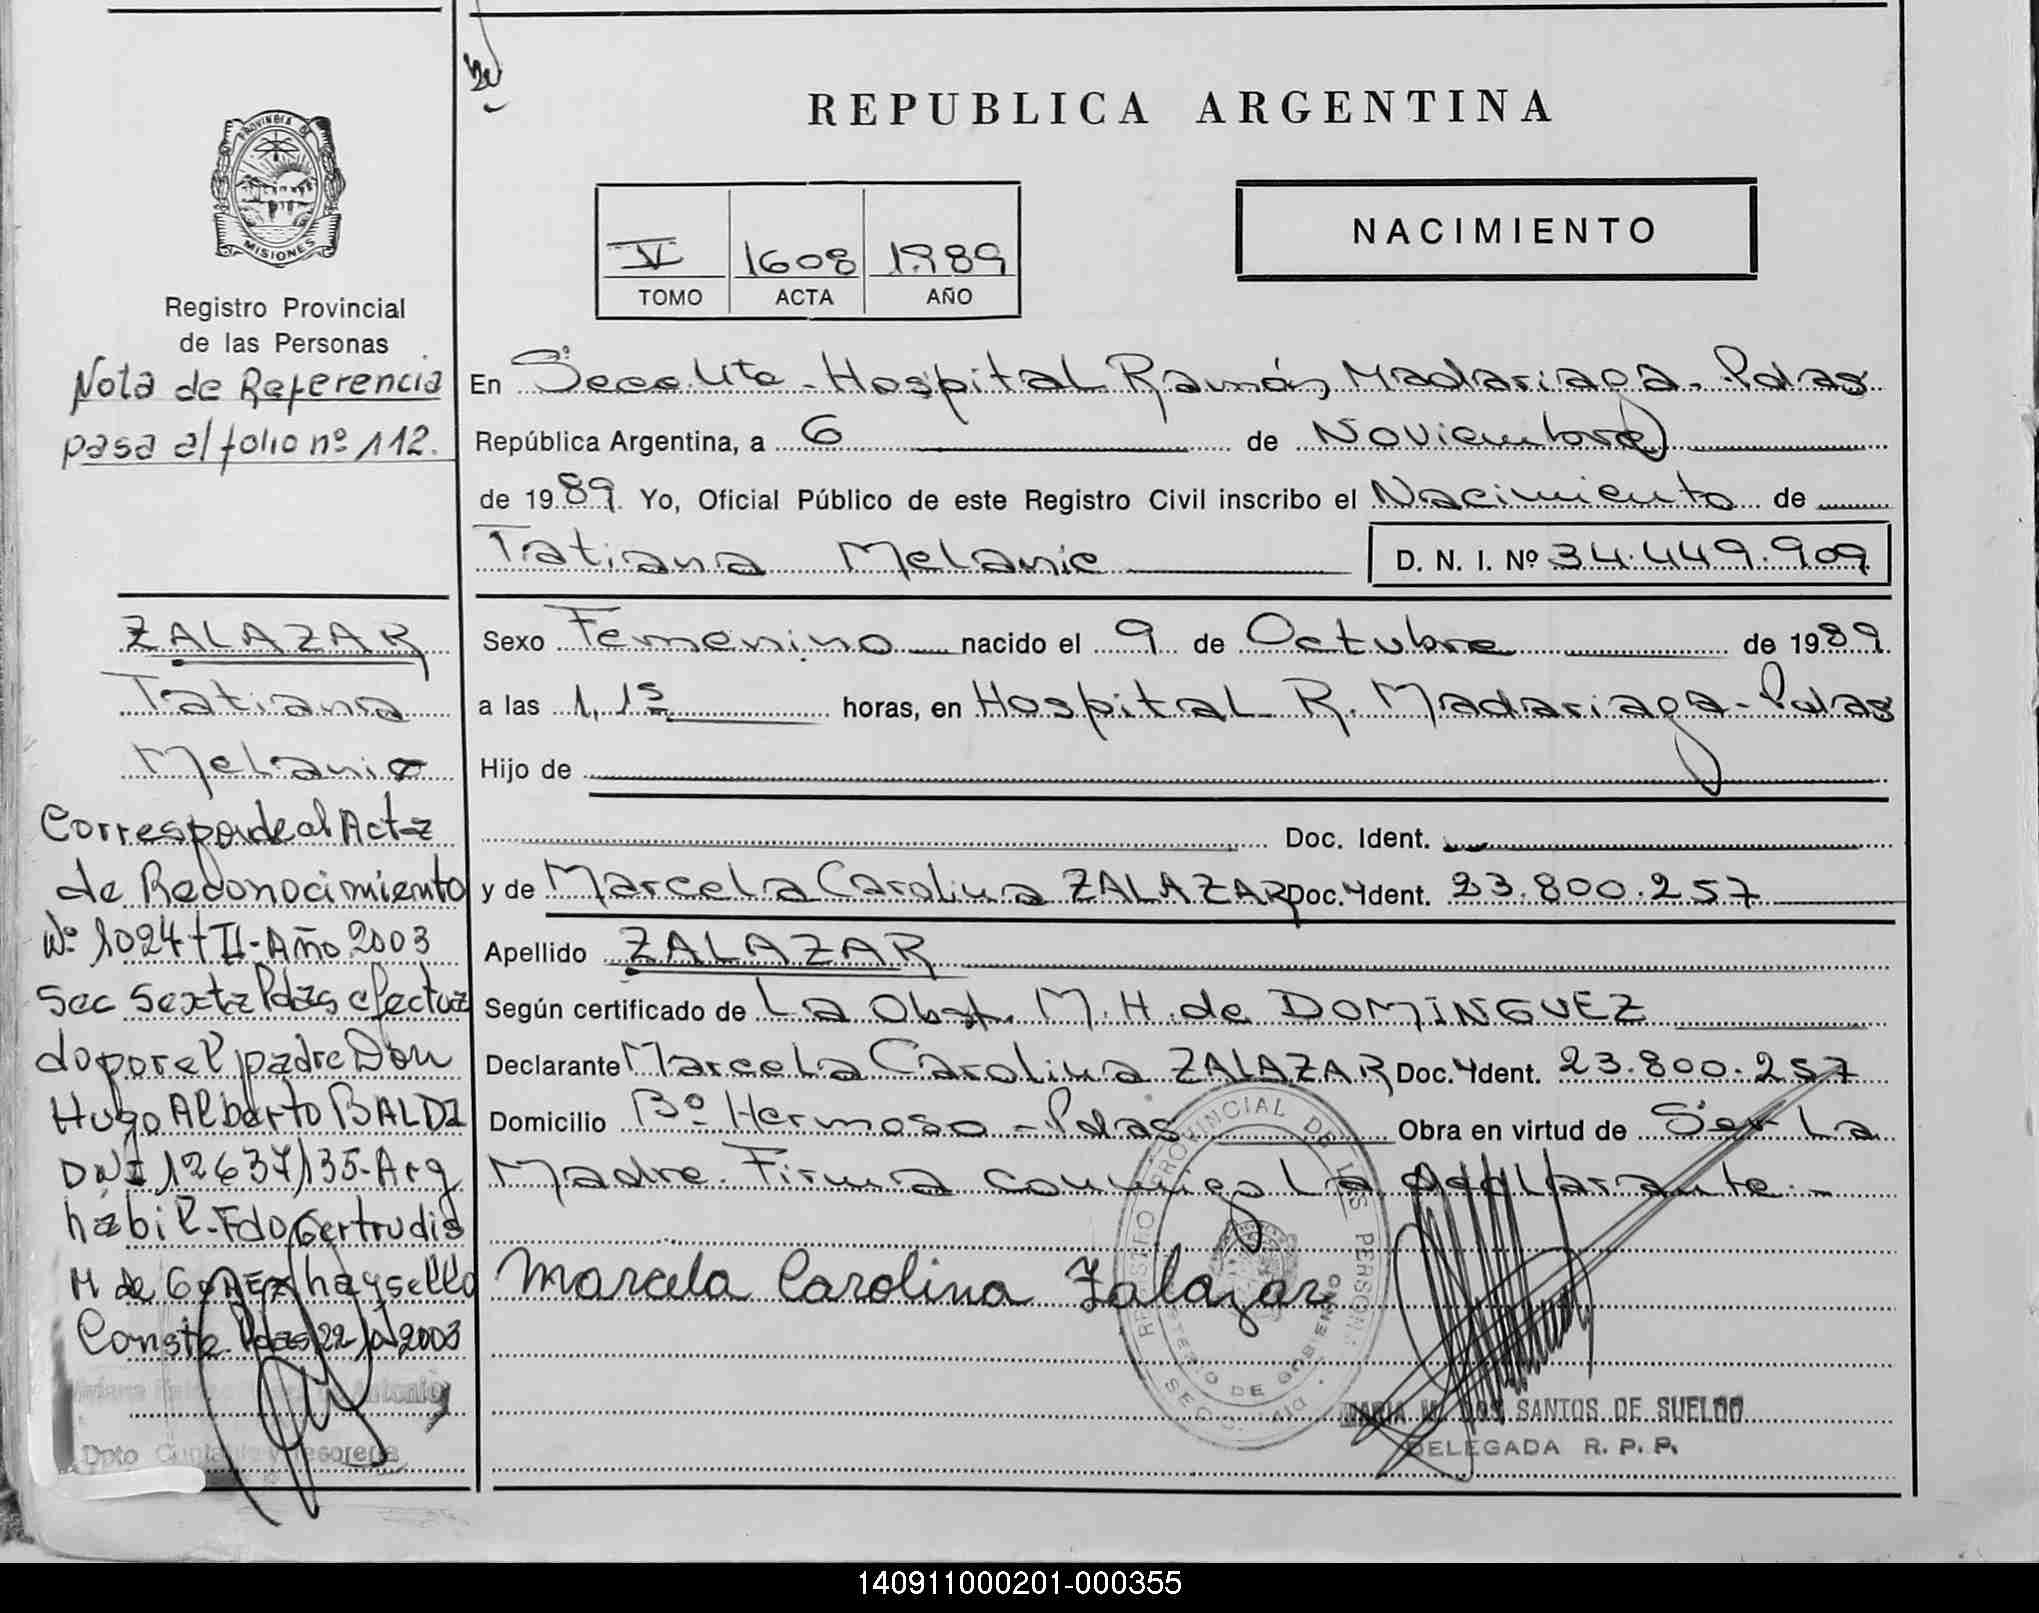 REPUBLICA ARGENTINA
PROVINCIA DE
MISIONES
Registro Provincial
de las Personas
Nota de Referencia
pasa al folio nº 112.
V 1608 1989
TOMO ACTA AÑO
NACIMIENTO
En Secc. Hospital Ramón Madariaga. Pdas
República Argentina, a 6 de Noviembre
de 1989. Yo, Oficial Público de este Registro Civil inscribo el Nacimiento de
Tatiana Melanie D. N. I. Nº 34.449.909
Sexo Femenino nacido el 9 de Octubre de 1989.
a las 1,15 horas, en Hospital R. Madariaga - Pdas
Hijo de
Doc. Ident.
y de Marcela Carolina ZALAZAR Doc. Ident. 23.800.257
Apellido ZALAZAR
Según certificado de La Obst. M. H. de DOMINGUEZ
Declarante Marcela Carolina ZALAZAR Doc. Ident. 23.800.257
Domicilio Bº Hermoso - Pdas Obra en virtud de Ser La
Madre. Firma conmigo La
Marcela Carolina Zalazar
REGISTRO PROVINCIAL DE LAS PERSONAS
DE GOBIERNO
MARIA M. DOS SANTOS DE SUELDO
DELEGADA R. P. P.
ZALAZAR
Tatiana
Melanie
Corresponde al Acta
de Reconocimiento
Nº 1024 t II - Año 2003
Sec Sexta Pdas efectua
do por el padre Don
Hugo Alberto BALDI
DNI 12637135 - Arg
habil - Fdo Gertrudis
M de GOMEZ hay sello
Conste. Pdas 22 2003
Antonio
Dpto Contable y Tesorería
140911000201-000355